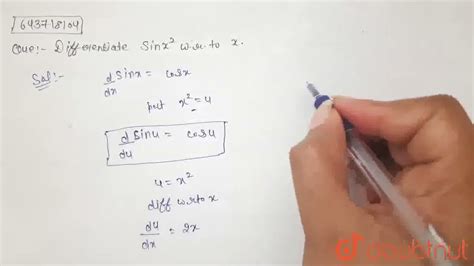 643718104
Que:- Differentiate Sinx² w.r. to x.
Sol:- d/dx Sinx = cosx
put x² = u
d/du Sinu = cosu
u = x²
diff w.r.to x
du/dx = 2x
doubtnut